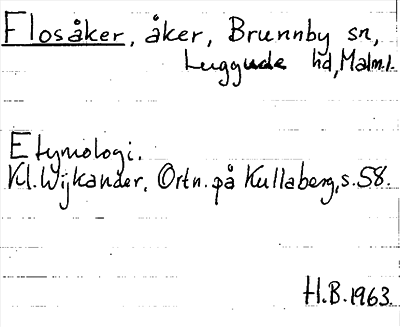 Flosåker, åker, Brunnby sn,
Luggude hd, Malm.l.
Etymologi.
Kl. Wijkander, Ortn. på Kullaberg, s. 58.
H.B. 1963.